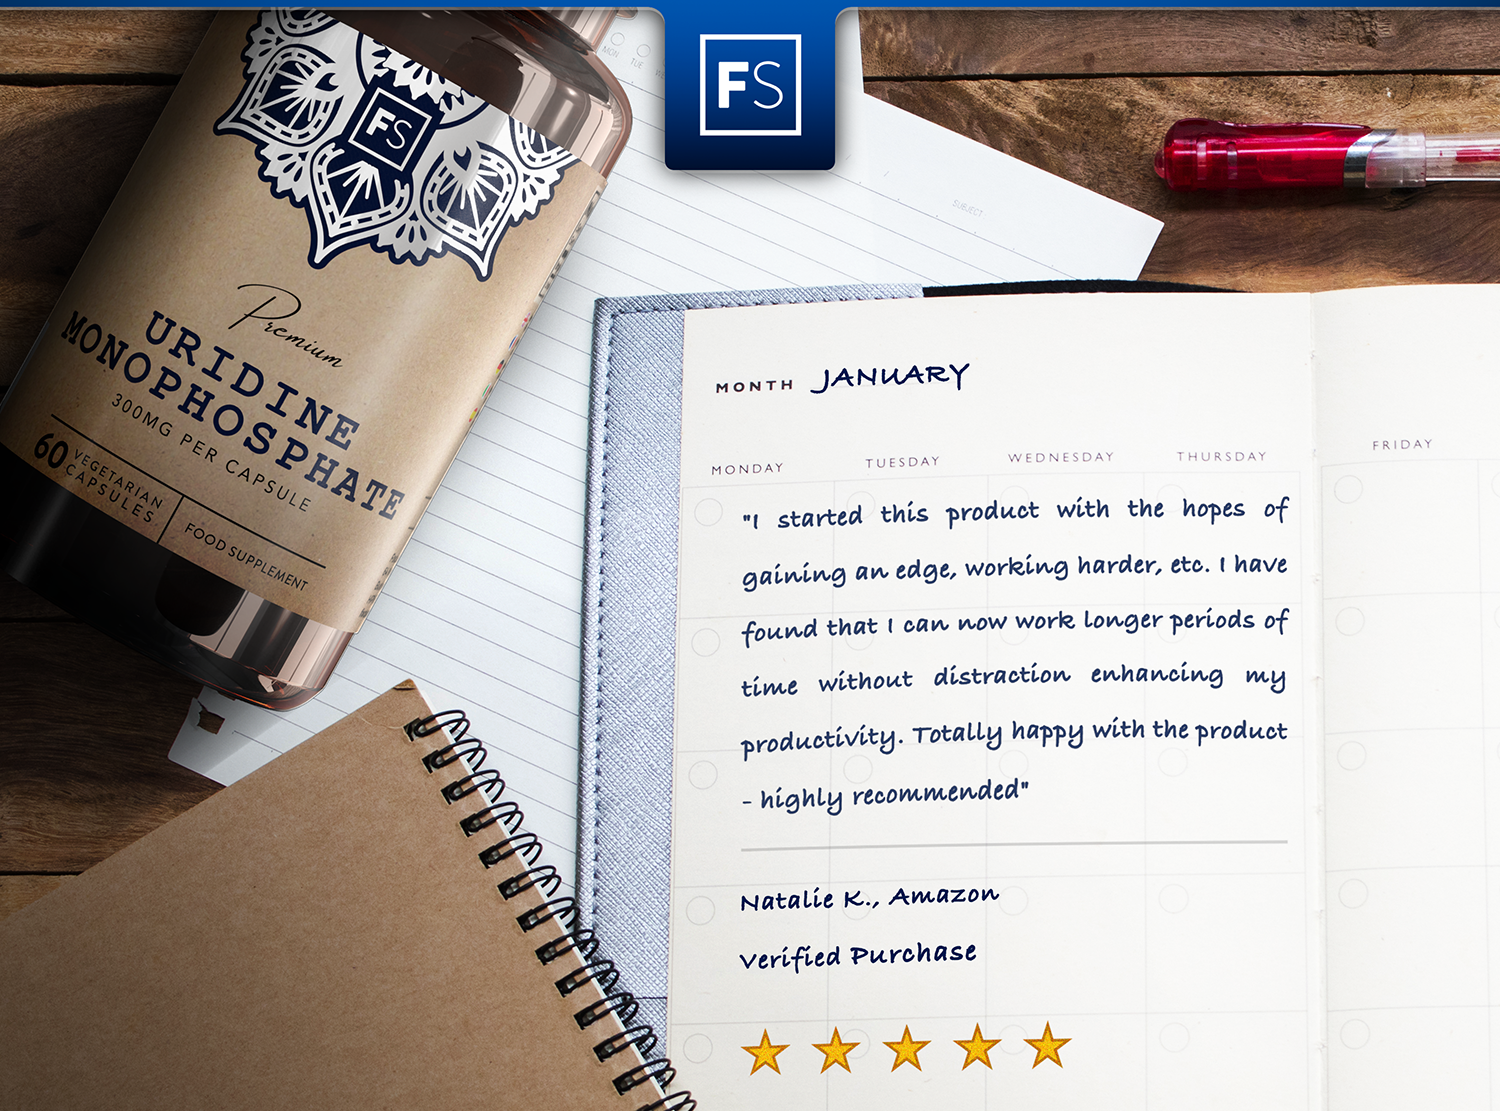 FS
MON TUE
FS
SUBJECT
Premium
URIDINE
MONOPHOSPHATE
300MG PER CAPSULE
60 VEGETARIAN
CAPSULES
FOOD SUPPLEMENT
MONTH JANUARY
MONDAY TUESDAY WEDNESDAY THURSDAY FRIDAY
"I started this product with the hopes of
gaining an edge, working harder, etc. I have
found that I can now work longer periods of
time without distraction enhancing my
productivity. Totally happy with the product
- highly recommended"
Natalie K., Amazon
Verified Purchase